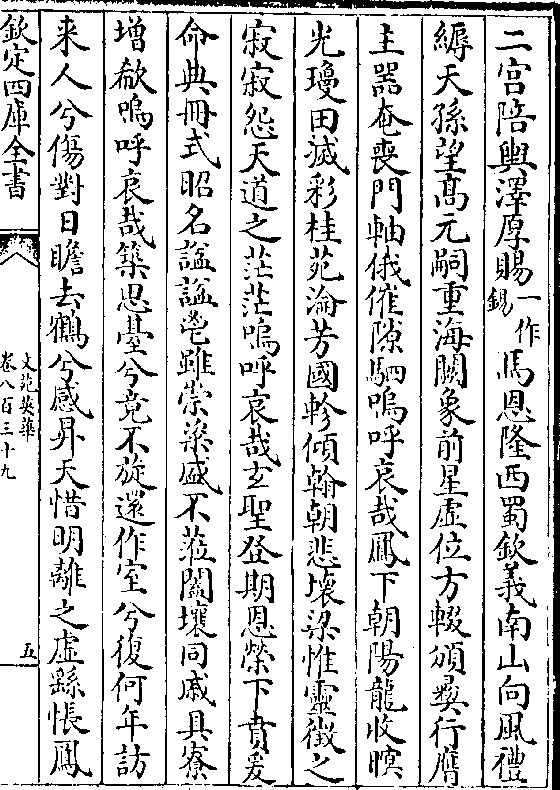 二宫陪輿澤厚賜一作錫馬恩隆西蜀欽義南山向風禮
縟天孫望髙元嗣重海闕象前星虚位方輟頒彛行膺
主器奄喪門軸俄催隙駟嗚呼哀哉鳳下朝陽龍收暝
光瓊田滅彩桂苑淪芳國軫傾翰朝悲壊梁惟靈徴之
寂寂怨天道之茫茫嗚呼哀哉玄聖登期恩榮下賁爰
命典冊式昭名諡諡鬯雖崇粢盛不蒞闔壤同戚具寮
增欷嗚呼哀哉築思臺兮竟不旋還作室兮復何年訪
来人兮傷對日瞻去鶴兮感昇天惜明離之虚緜悵鳳
欽定四庫全書
文苑英華
卷八百三十九
五